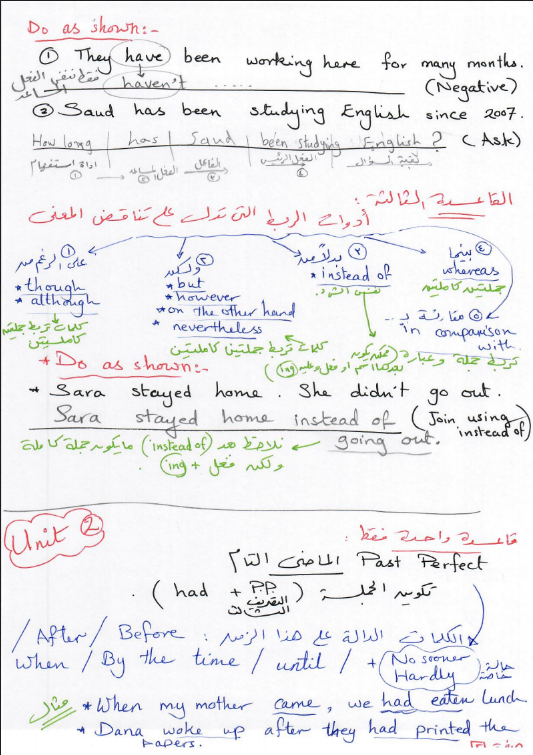 Do as shown:-
① They have been working here for many months.
فقط ننفي الفعل المساعد haven't ..... (Negative)
② Saud has been studying English since 2007.
How long | has | Saud | been studying English? (Ask)
اداة استفهام ① الفعل المساعد ② الفاعل ③ الفعل الرئيسي ④ تكملة السؤال
القاعدة الثالثة:
أدوات الربط التي تدل على تناقض المعنى
① على الرغم من ② ولكن ③ بدلاً من ④ بينما
* though * but * instead of whereas
* although * however نفس الشيء جملتين كاملتين
* on the other hand ⑤ مقارنة بـ ...
كلمات تربط جملتين كاملتين * nevertheless in comparison with
كلمات تربط جملتين كاملتين
تربط جملة وعبارة (ing)
* Do as shown:-
* Sara stayed home. She didn't go out.
Sara stayed home instead of going out. (Join using instead of)
نلاحظ بعد (instead of) ما يكون جملة كاملة
ولكن فعل + ing
Unit 2
قاعدة واحدة فقط:
الماضي التام Past Perfect
تكوين الجملة (had + P.P التصريف الثالث).
* الكلمات الدالة على هذا الزمن: /After / Before /
when / By the time / until / + No sooner Hardly حالة خاصة
مثال * When my mother came, we had eaten lunch.
* Dana woke up after they had printed the papers.